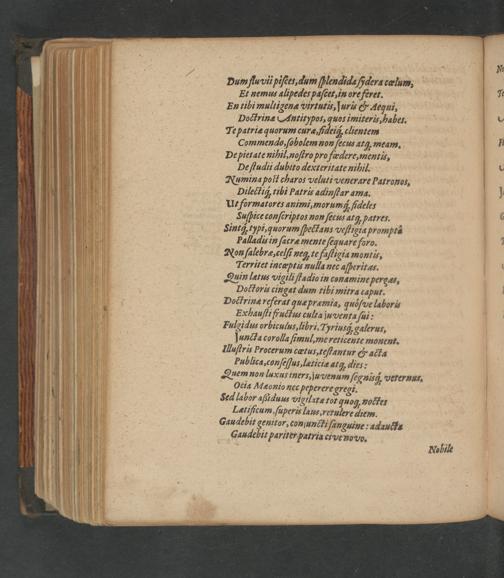 Dum fluvii pisces, dum splendida sydera cœlum,
Et nemus alipedes pascet, in ore feret.
En tibi multigenæ virtutis, Juris & Aequi,
Doctrinæ Antitypos, quos imiteris, habes.
Te patriæ quorum curæ, fideiq́;, clientem
Commendo, sobolem non secus atq;, meam.
De pietate nihil, nostro pro fœdere, mentis,
De studii dubito dexteritate nihil.
Numina post charos veluti venerare Patronos,
Dilectiq́;, tibi Patris adinstar ama.
Ut formatores animi, morumq́;, fideles
Suspice conscriptos non secus atq;, patres.
Sintq́;, typi, quorum spectans vestigia promptâ
Palladii in sacræ mente sequare foro.
Non salebræ, celsi neq;, te fastigia montis,
Territet incœptis nulla nec asperitas.
Quin lætus vigili stadio in conamine pergas,
Doctoris cingat dum tibi mitra caput.
Doctrinæ referat quæ præmia, quósve laboris
Exhausti fructus culta juventa sui:
Fulgidus orbiculus, libri, Tyriusq́;, galerus,
Juncta corolla simul, me reticente monent.
Illustris Procerum cœtus, testantur & acta
Publica, consessus, laticia atq;, dies:
Quem non luxus iners, juvenum segnisq́;, veternus,
Ocia Mæonio nec peperere gregi.
Sed labor assiduus vigilatæ tot quoq;, noctes
Lætificum, superis laus, retulere diem.
Gaudebit genitor, conjuncti sanguine: adaucta
Gaudebit pariter patria cive novo.
Nobile